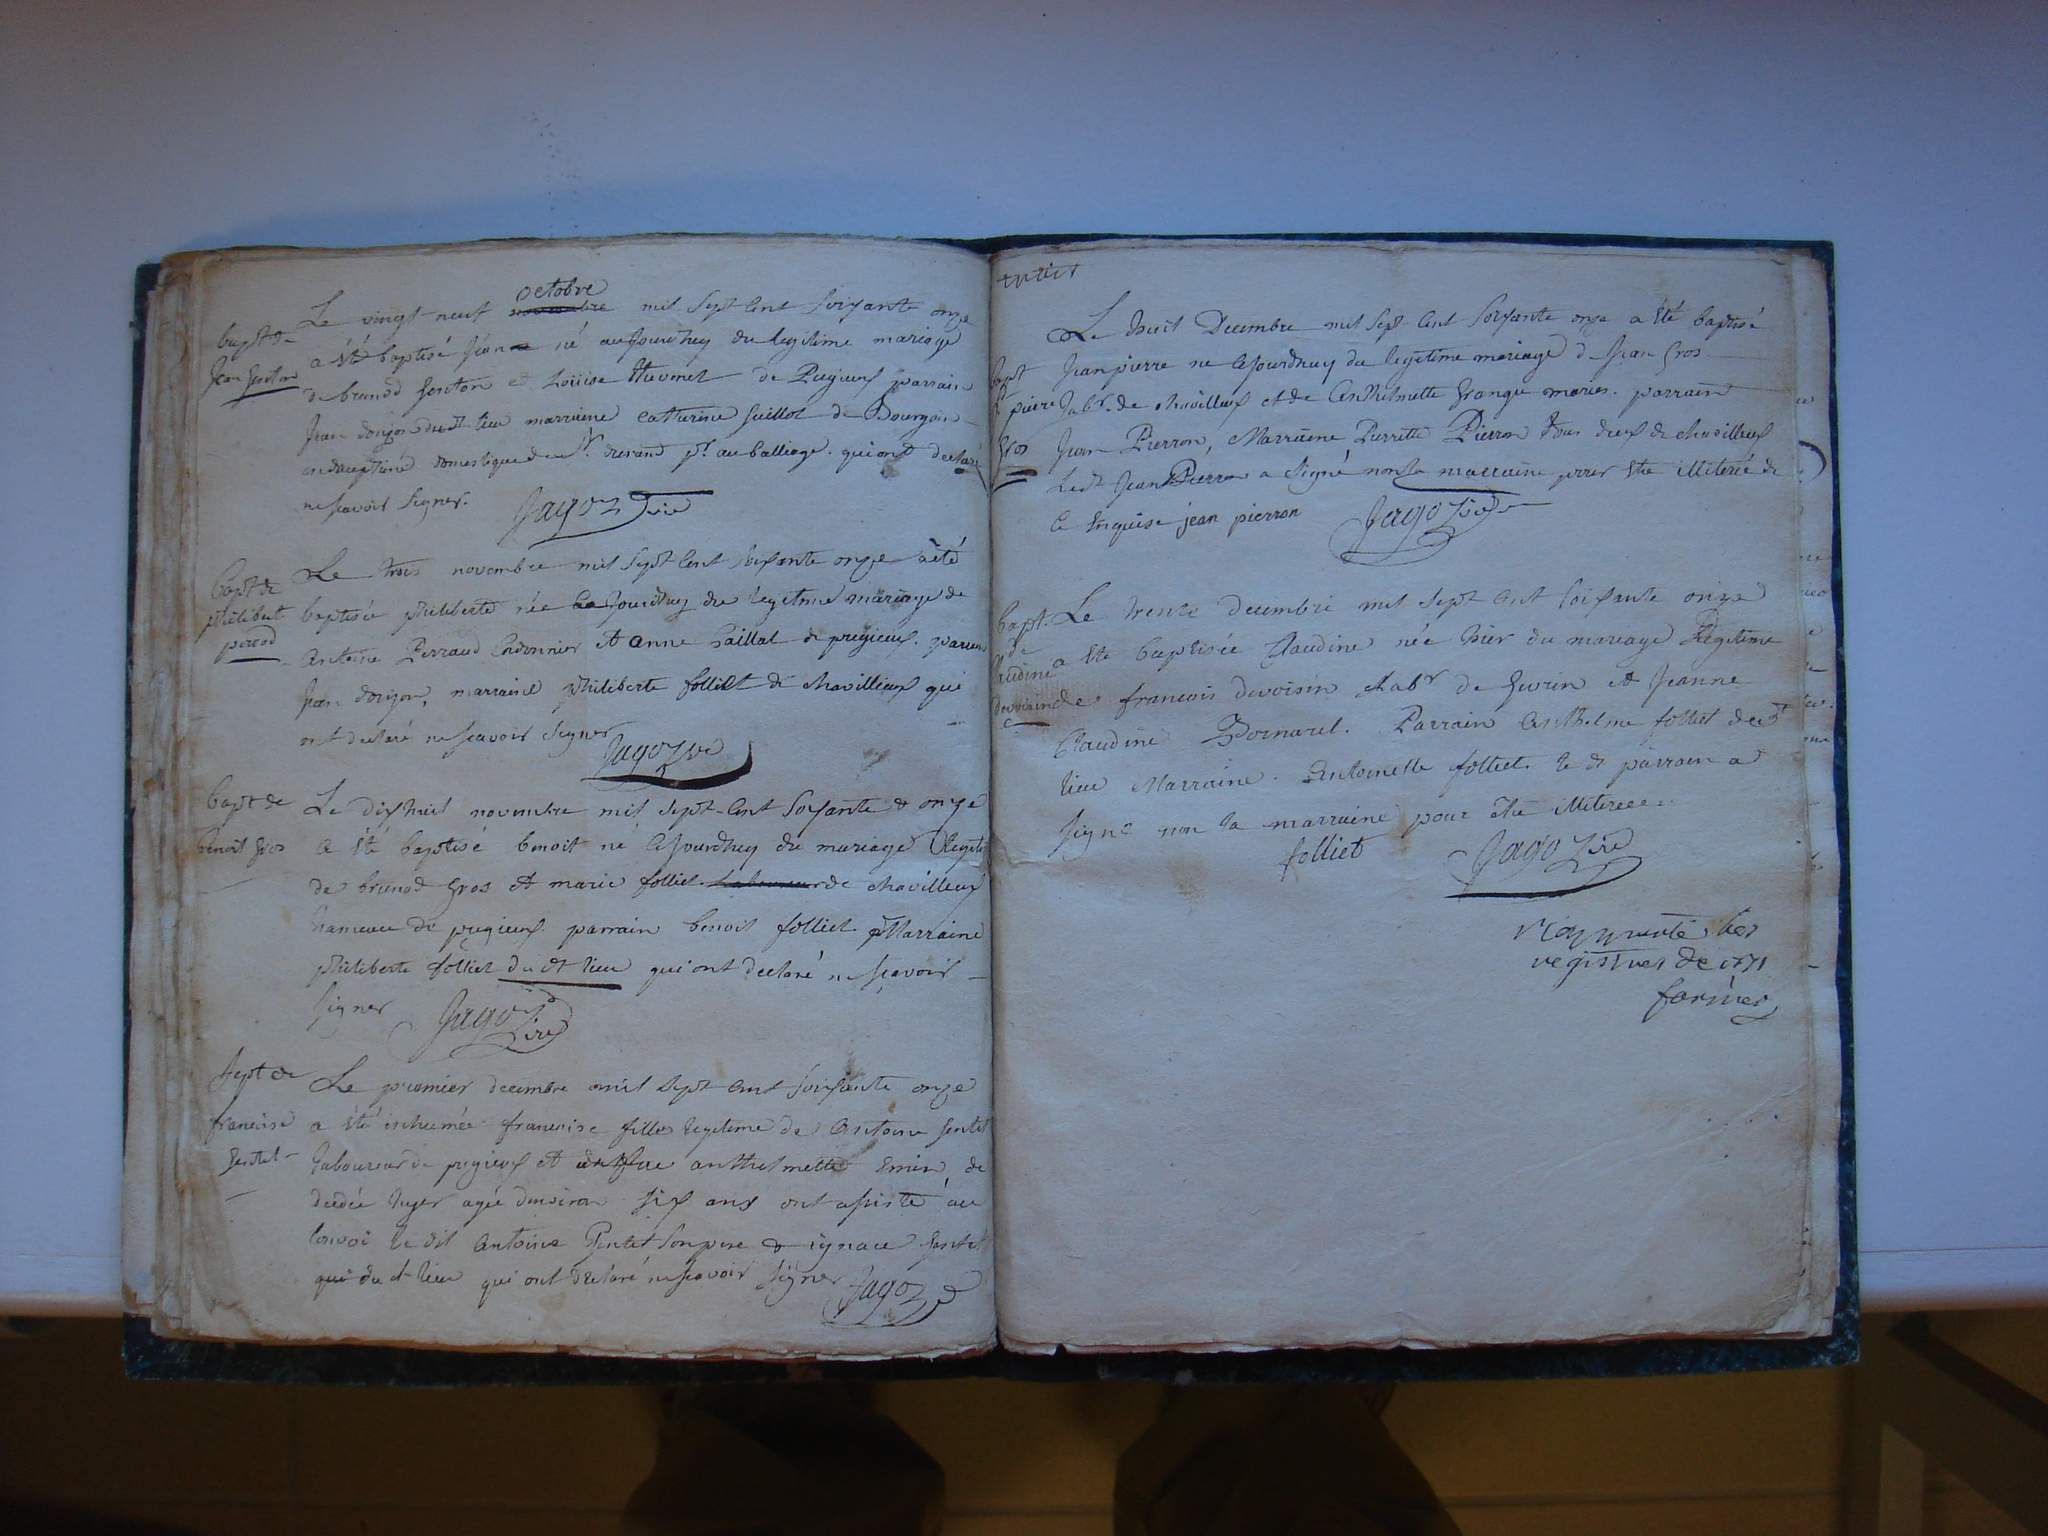 Le vingt neuf octobre mil sept cent soixante onze
bapt de
Jean Genton
a été baptisé Jean né aujourdhuy du legitime mariage
de brunod genton et Louise thevenet de Pugieux parrain
Jean donjon du dt lieu marraine catherine guillot de Bourgoin
en dauphiné domestique de mr. pr. au balliage. qui ont declaré
ne scavoir signer.
Jago vire
bapt de
philibert
perod
Le trois novembre mil sept cent soixante onze a été
baptisée philiberte née ce jourdhuy du legitime mariage de
antoine Perraud Cordonnier et anne Caillat de pugieux. parrain
Jean donjon, marraine philiberte folliet de chavillieux qui
ont declaré ne scavoir signer
Jago vire
bapt de
benoit gros
Le dixhuit novembre mil sept cent soixante & onze
a été baptisé benoit né cejourdhuy du mariage legite
de brunod gros et marie folliet de chavilleux
hameau de pugieux parrain benoit folliet Marraine
philiberte folliet du dt lieu qui ont declaré ne scavoir
signer Jago vire
sept de
francoise
gentet
Le premier decembre mil sept cent soixante onze
a été inhumée francoise fille legitime de antoine gentet
laboureur de pugieux et anthelmette emin de
decedée hyer agée denviron six ans ont assisté au
convoi le dit antoine gentet son pere & ignace gentet
qui du dt lieu qui ont declaré ne scavoir signer Jago
huit
Le huit Decembre mil sept cent soixante onze a été baptisé
bapt
Jean pierre né cejourdhuy du legitime mariage d Jean gros
pierre
labr. de chavilleux et de Anthelmette grange mariés. parrain
gros
Jean Pierron, Marraine Pierrette Pierron tous deux de chavilleux
Ledt Jean Pierron a signé non la marraine pour etre illiterée de
ce enquise jean pierron Jago vire
bapt.
de
claudine
devoisin
Le trente decembre mil sept cent soixante onze
a eté baptisée Claudine née hier du mariage legitime
de francois devoisin labr de et Jeanne
Claudine Bornarel. Parrain Anthelme folliet du dt
lieu Marraine Antoinette folliet. le dt parrain a
signé non la marraine pour etre illiteree.
folliet Jago vire
les
registres de 1771